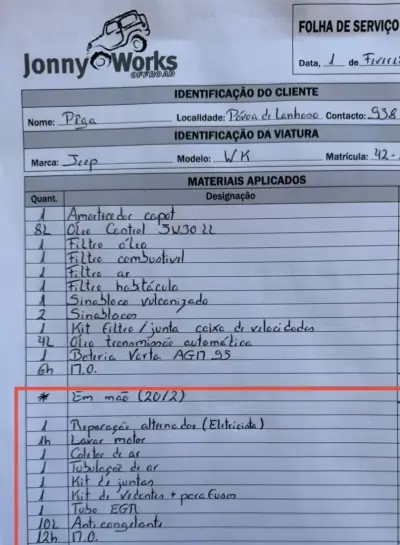 Jonny Works
OFFROAD
FOLHA DE SERVIÇO
Data, 1 de
IDENTIFICAÇÃO DO CLIENTE
Nome: Localidade: Póvoa de Lanhoso Contacto: 938
IDENTIFICAÇÃO DA VIATURA
Marca: Jeep Modelo: WK Matrícula: 42-
MATERIAIS APLICADOS
Quant. Designação
1 Amortecedor capot
8L Óleo 5W30 LL
1 Filtro óleo
1 Filtro combustivel
1 Filtro ar
1 Filtro habitáculo
1 Sinobloco vulcanizado
2 Sinoblocos
1 Kit filtro / junta caixa de velocidades
4L Óleo transmissão automática
1 Bateria Varta AGM 95
6h M.O.
* Em mão (20/2)
1 Reparação alternador (Eletricista)
1h Lavar motor
1 Coletor de ar
1 Tubulação de ar
1 Kit de juntas
1 Kit de vedantes + parafusos
1 Tubo EGR
10L Anticongelante
12h M.O.